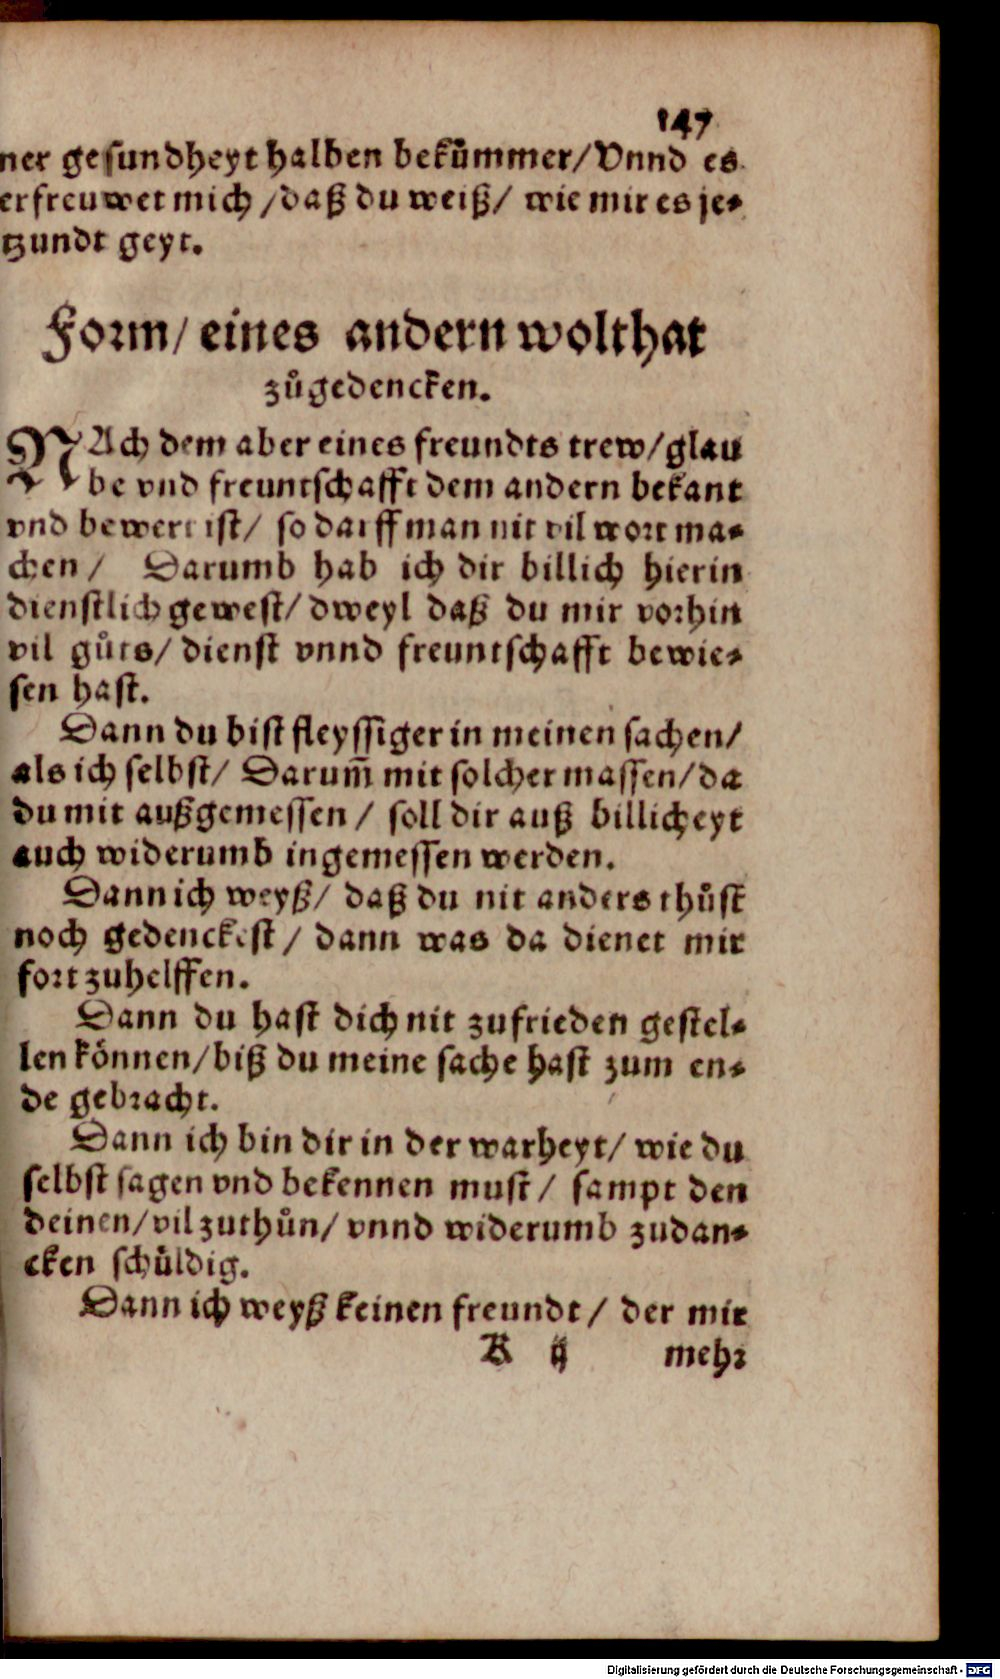 147
ner gesundheyt halben bekům̃er/Vnnd es
erfreuwet mich/daß du weiß/ wie mir es je-
tzundt geyt.
Form/ eines andern wolthat
zůgedencken.
NAch dem aber eines freundts trew/glau
be vnd freuntschafft dem andern bekant
vnd bewert ist/ so darff man nit vil wort ma-
chen/ Darumb hab ich dir billich hierin
dienstlich gewest/ dweyl daß du mir vorhin
vil gůts/ dienst vnnd freuntschafft bewie-
sen hast.
Dann du bist fleyssiger in meinen sachen/
als ich selbst/ Darum̃ mit solcher massen/da
du mit außgemessen/ soll dir auß billicheyt
auch widerumb ingemessen werden.
Dann ich weyß/ daß du nit anders thůst
noch gedenckest/ dann was da dienet mir
fort zuhelffen.
Dann du hast dich nit zufrieden gestel-
len können/biß du meine sache hast zum en-
de gebracht.
Dann ich bin dir in der warheyt/ wie du
selbst sagen vnd bekennen must/ sampt den
deinen/vil zuthůn/ vnnd widerumb zudan-
cken schůldig.
Dann ich weyß keinen freundt/ der mir
K ij mehr
Digitalisierung gefördert durch die Deutsche Forschungsgemeinschaft - DFG